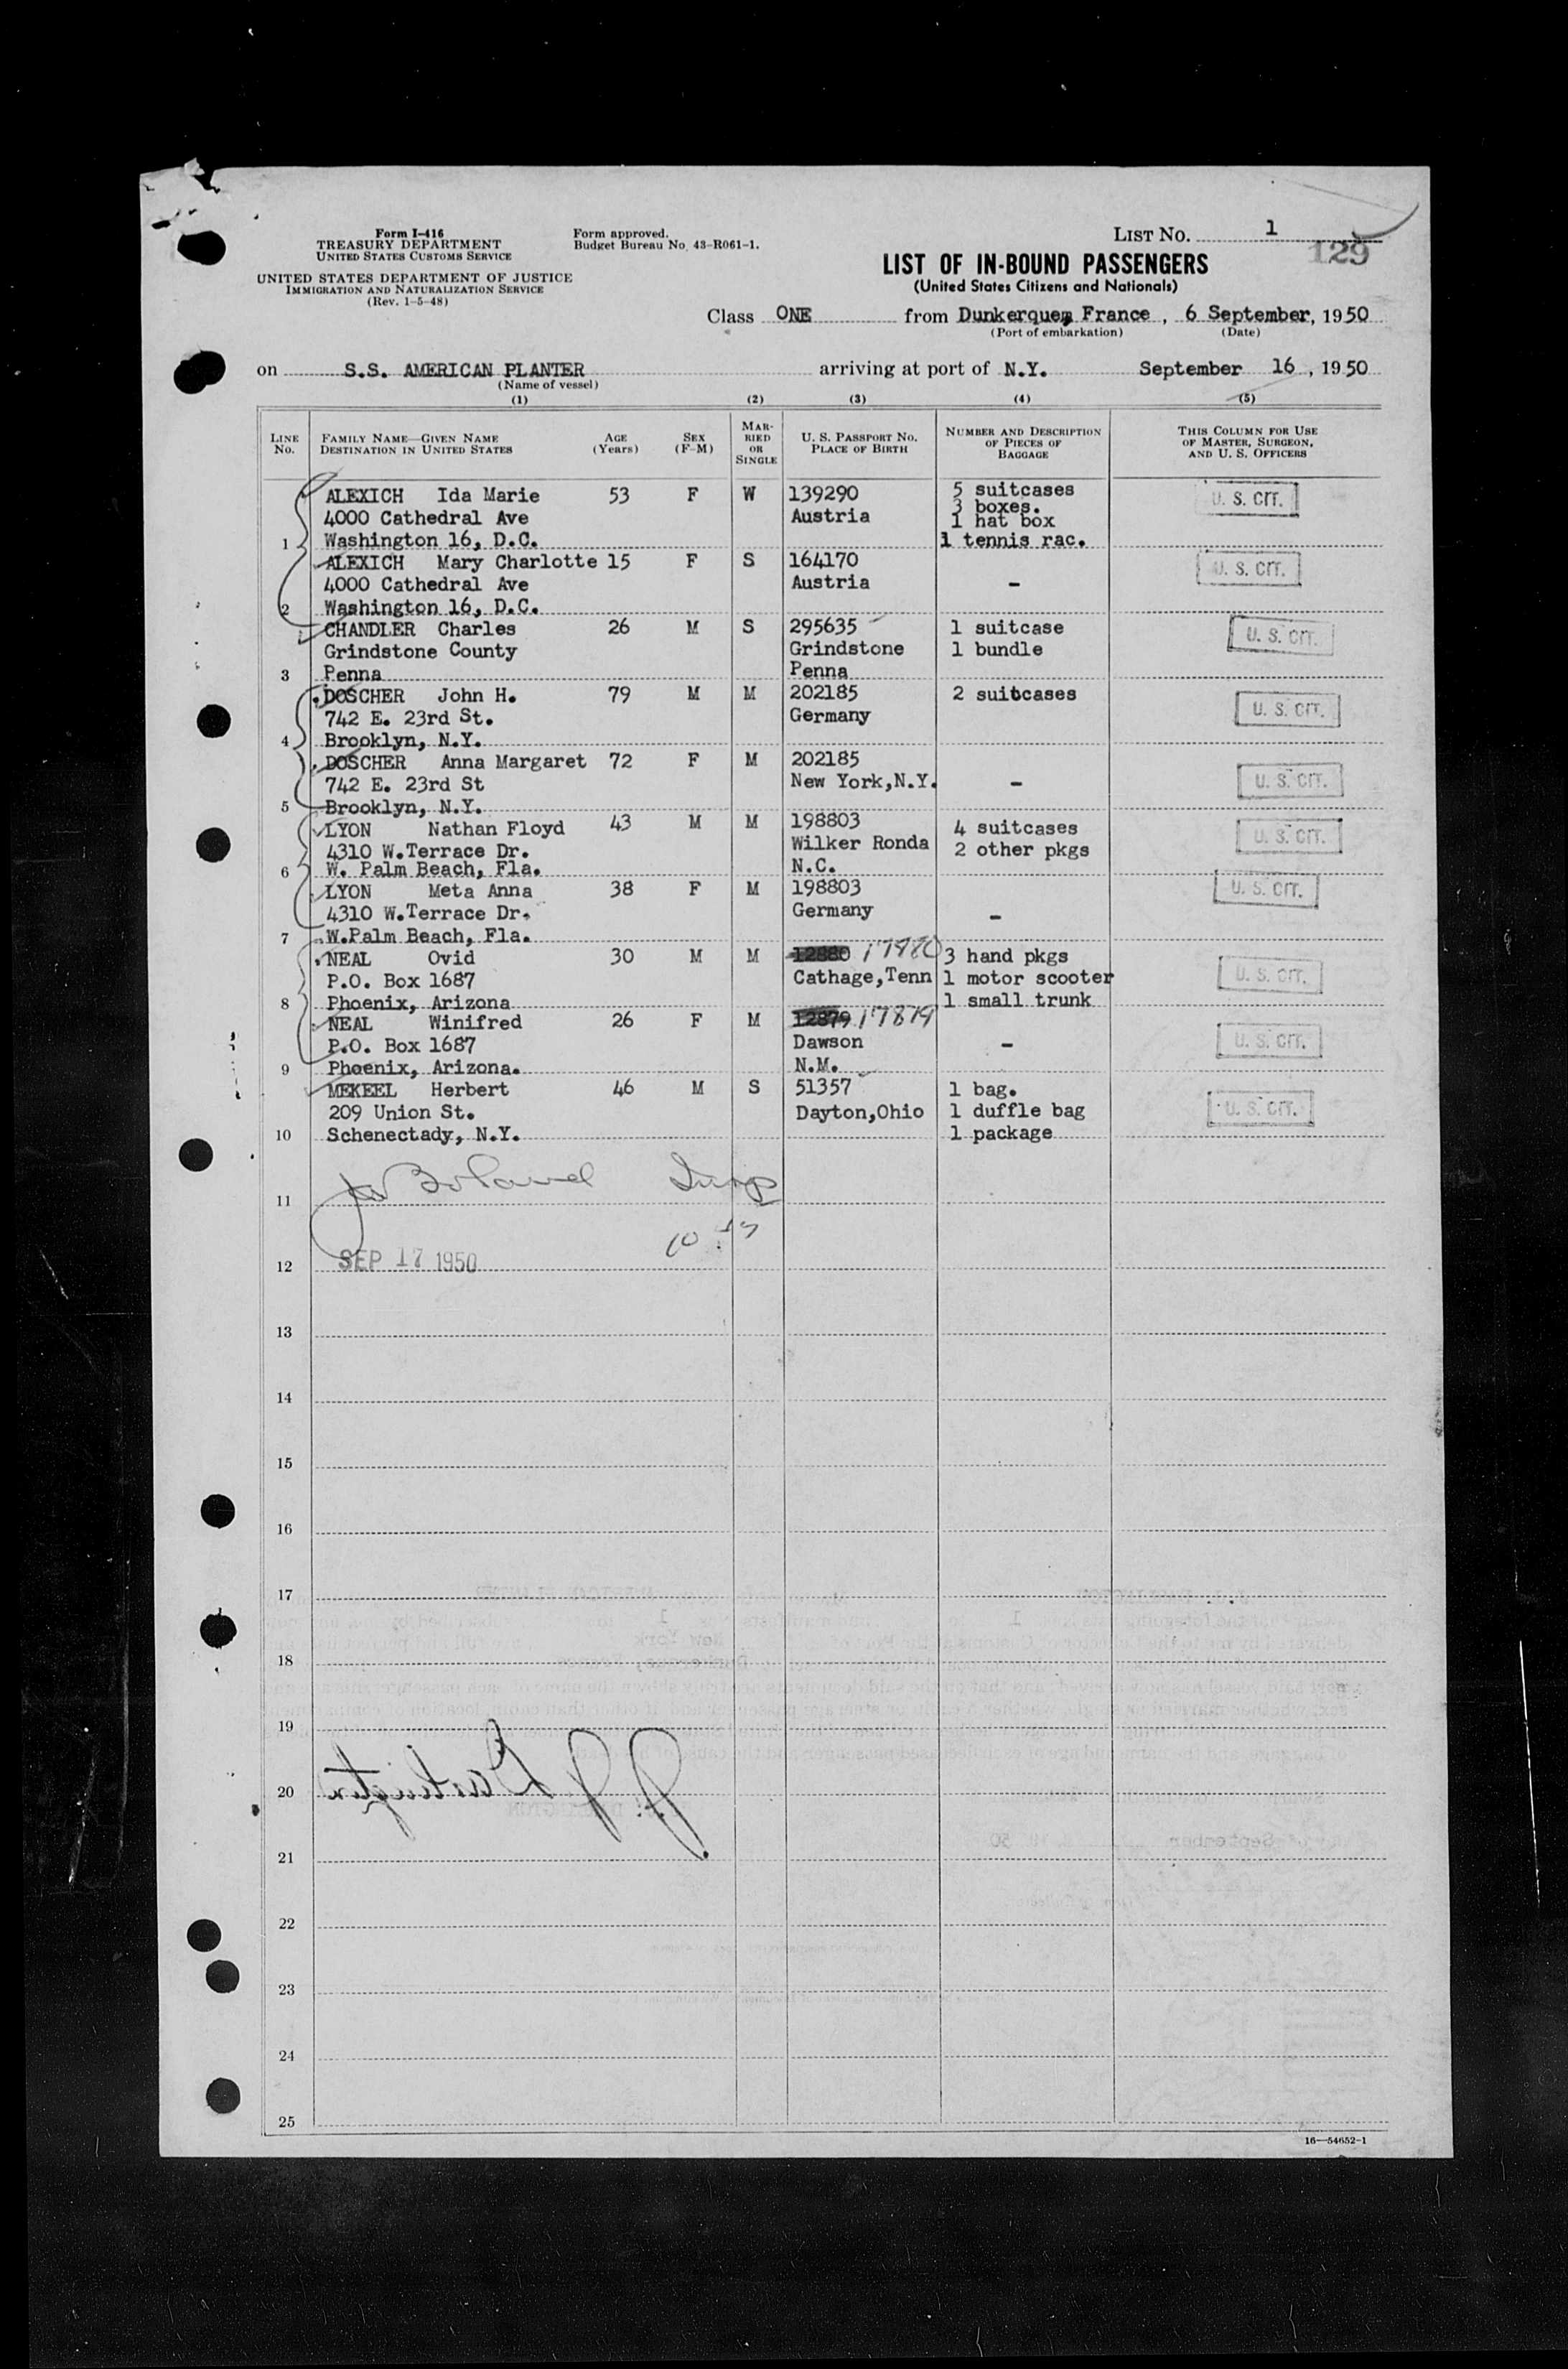 Form I-416
TREASURY DEPARTMENT
UNITED STATES CUSTOMS SERVICE
UNITED STATES DEPARTMENT OF JUSTICE
IMMIGRATION AND NATURALIZATION SERVICE
(Rev. 1-5-48)
Form approved.
Budget Bureau No. 43-R061-1.
LIST NO. 1
129
LIST OF IN-BOUND PASSENGERS
(United States Citizens and Nationals)
Class ONE from Dunkerque, France, 6 September, 1950
(Port of embarkation) (Date)
on S.S. AMERICAN PLANTER arriving at port of N.Y. September 16, 1950
(Name of vessel)
(1) (2) (3) (4) (5)
LINE No. FAMILY NAME—GIVEN NAME DESTINATION IN UNITED STATES AGE (Years) SEX (F-M) MARRIED OR SINGLE U. S. PASSPORT NO. PLACE OF BIRTH NUMBER AND DESCRIPTION OF PIECES OF BAGGAGE THIS COLUMN FOR USE OF MASTER, SURGEON, AND U. S. OFFICERS
ALEXICH Ida Marie 53 F W 139290 5 suitcases U. S. CIT.
4000 Cathedral Ave Austria 3 boxes.
1 hat box
1 Washington 16, D.C. 1 tennis rac.
ALEXICH Mary Charlotte 15 F S 164170 U. S. CIT.
4000 Cathedral Ave Austria -
2 Washington 16, D.C.
CHANDLER Charles 26 M S 295635 1 suitcase U. S. CIT.
Grindstone County Grindstone 1 bundle
3 Penna Penna
DOSCHER John H. 79 M M 202185 2 suitcases U. S. CIT.
742 E. 23rd St. Germany
4 Brooklyn, N.Y.
DOSCHER Anna Margaret 72 F M 202185 U. S. CIT.
742 E. 23rd St New York,N.Y. -
5 Brooklyn, N.Y.
LYON Nathan Floyd 43 M M 198803 4 suitcases U. S. CIT.
4310 W.Terrace Dr. Wilker Ronda 2 other pkgs
6 W. Palm Beach, Fla. N.C.
LYON Meta Anna 38 F M 198803 U. S. CIT.
4310 W.Terrace Dr. Germany -
7 W.Palm Beach, Fla.
NEAL Ovid 30 M M 12880 17980 3 hand pkgs U. S. CIT.
P.O. Box 1687 Cathage,Tenn 1 motor scooter
8 Phoenix, Arizona 1 small trunk
NEAL Winifred 26 F M 12879 17879 U. S. CIT.
P.O. Box 1687 Dawson -
9 Phoenix, Arizona. N.M.
MEKEEL Herbert 46 M S 51357 1 bag. U. S. CIT.
209 Union St. Dayton,Ohio 1 duffle bag
10 Schenectady, N.Y. 1 package
11
12 SEP 17 1950
13
14
15
16
17
18
19
20
21
22
23
24
25
16—54652-1